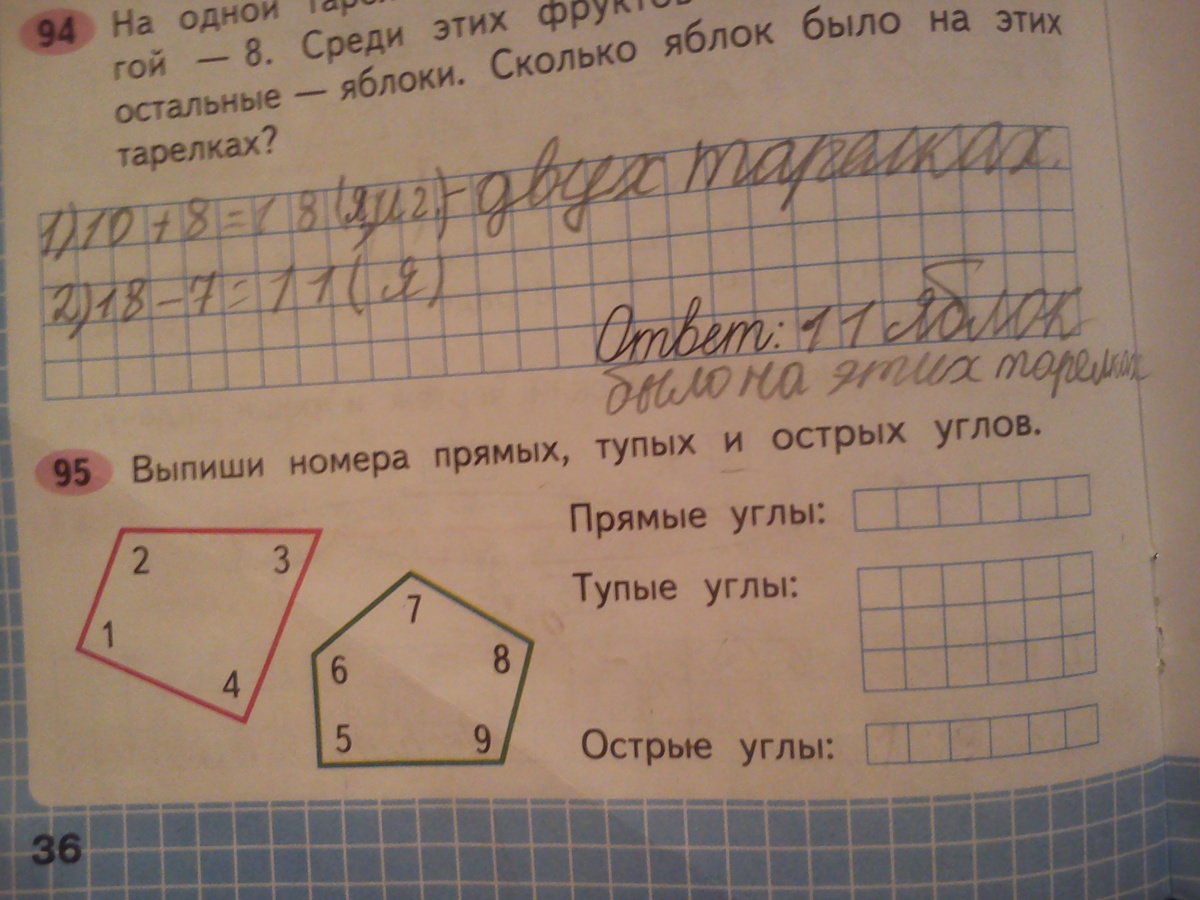 94 На одной
гой — 8. Среди этих фруктов
остальные — яблоки. Сколько яблок было на этих
тарелках?
1) 10 + 8 = 18 (я, и г.) - двух тарелках.
2) 18 - 7 = 11 (я)
Ответ: 11 яблок
было на этих тарелках
95 Выпиши номера прямых, тупых и острых углов.
Прямые углы:
Тупые углы:
Острые углы:
2 3
1 4
7
6 8
5 9
36